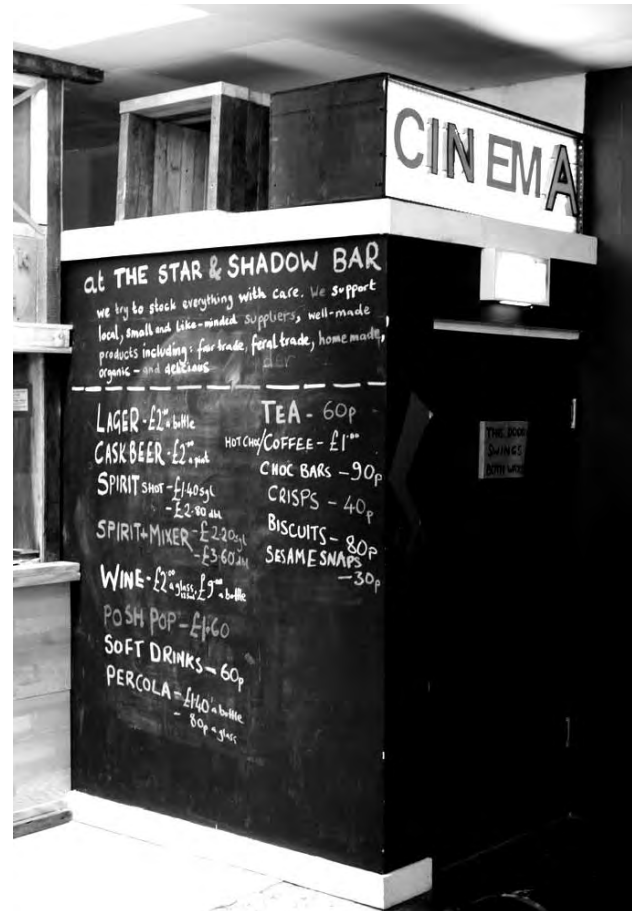 CINEMA
at THE STAR & SHADOW BAR
we try to stock everything with care. We support
local, small and like-minded suppliers, well-made
products including: fair trade, feral trade, home made,
organic - and delicious
LAGER - £2.00 a bottle
CASK BEER - £2.00 a pint
SPIRIT SHOT - £1.40 sgl
- £2.80 dbl
SPIRIT + MIXER - £2.20 sgl
- £3.60 dbl
WINE - £2.00 a glass, £9.00 a bottle
POSH POP - £1.60
SOFT DRINKS - 60p
PERCOLA - £1.40 a bottle
- 80p a glass
TEA - 60p
HOT CHOC/COFFEE - £1.00
CHOC BARS - 90p
CRISPS - 40p
BISCUITS - 80p
SESAME SNAPS
- 30p
THIS DOOR
SWINGS
BOTH WAYS